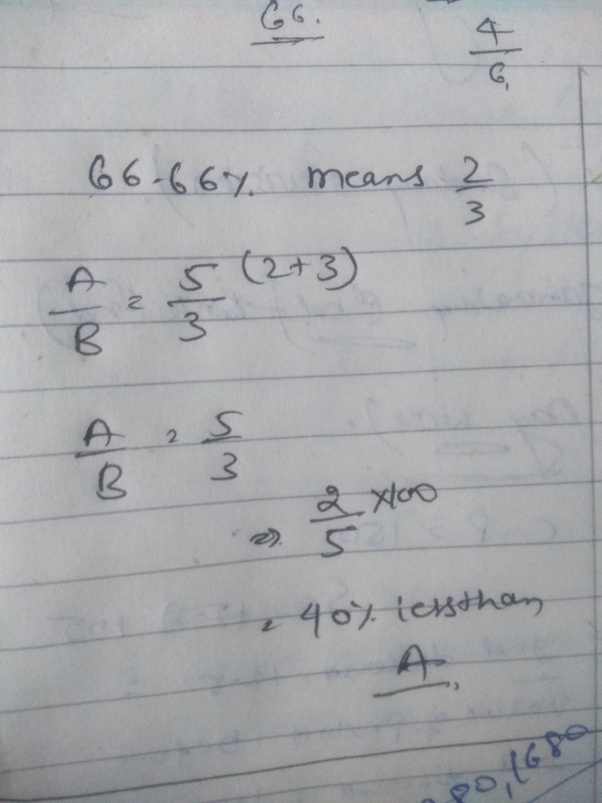 66.
4
6
66.66% means 2
3
A = 5 (2+3)
B 3
A = 5
B 3
⇒ 2 ×100
5
= 40% less than
A
80,1680